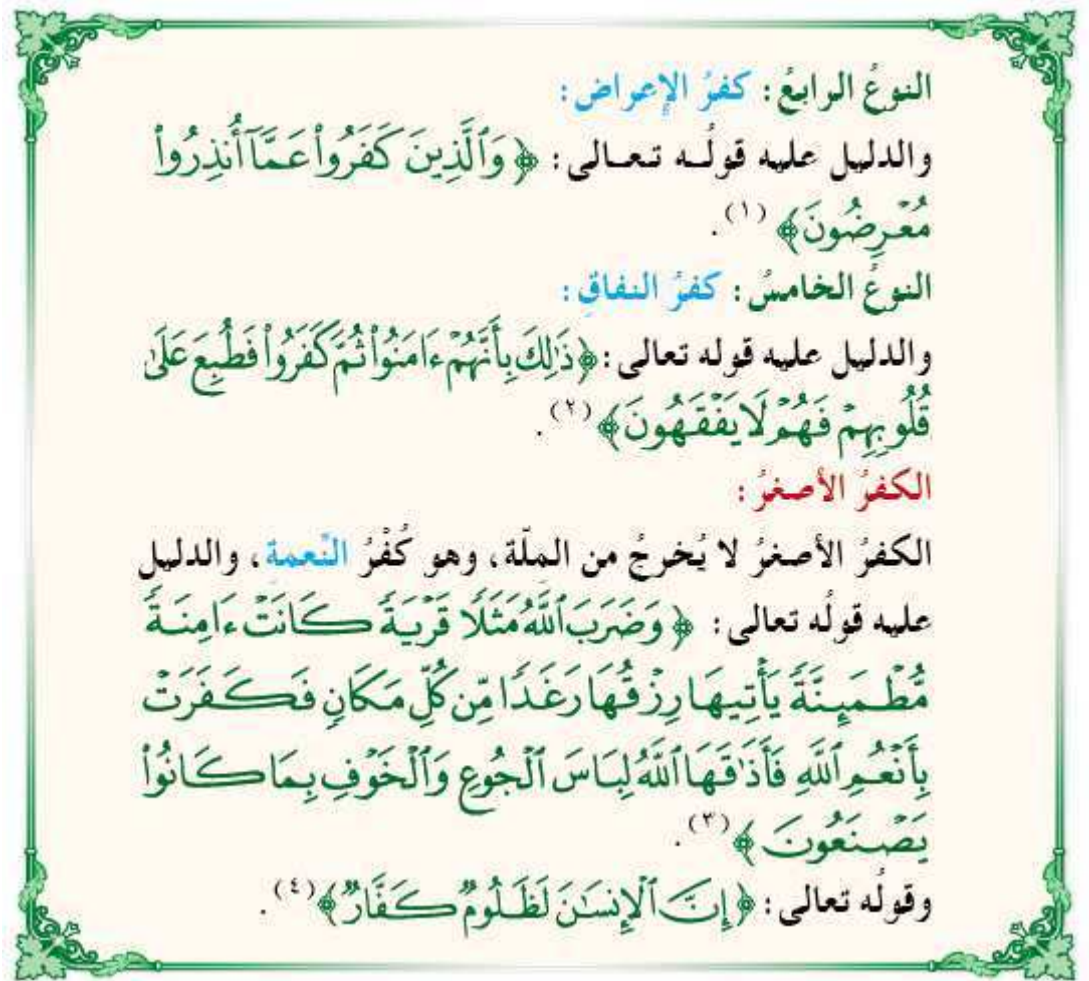 النوعُ الرابعُ: كفرُ الإعراض:
والدليل عليه قولُه تعالى: ﴿وَٱلَّذِينَ كَفَرُوا۟ عَمَّآ أُنذِرُوا۟
مُعْرِضُونَ﴾ (١).
النوعُ الخامسُ: كفرُ النفاقِ:
والدليل عليه قوله تعالى: ﴿ذَٰلِكَ بِأَنَّهُمْ ءَامَنُوا۟ ثُمَّ كَفَرُوا۟ فَطُبِعَ عَلَىٰ
قُلُوبِهِمْ فَهُمْ لَا يَفْقَهُونَ﴾ (٢).
الكفرُ الأصغرُ:
الكفرُ الأصغرُ لا يُخرجُ من الملّة، وهو كُفْرُ النِّعمة، والدليل
عليه قولُه تعالى: ﴿وَضَرَبَ ٱللَّهُ مَثَلًا قَرْيَةً كَانَتْ ءَامِنَةً
مُّطْمَئِنَّةً يَأْتِيهَا رِزْقُهَا رَغَدًا مِّن كُلِّ مَكَانٍ فَكَفَرَتْ
بِأَنْعُمِ ٱللَّهِ فَأَذَٰقَهَا ٱللَّهُ لِبَاسَ ٱلْجُوعِ وَٱلْخَوْفِ بِمَا كَانُوا۟
يَصْنَعُونَ﴾ (٣).
وقولُه تعالى: ﴿إِنَّ ٱلْإِنسَٰنَ لَظَلُومٌ كَفَّارٌ﴾ (٤).